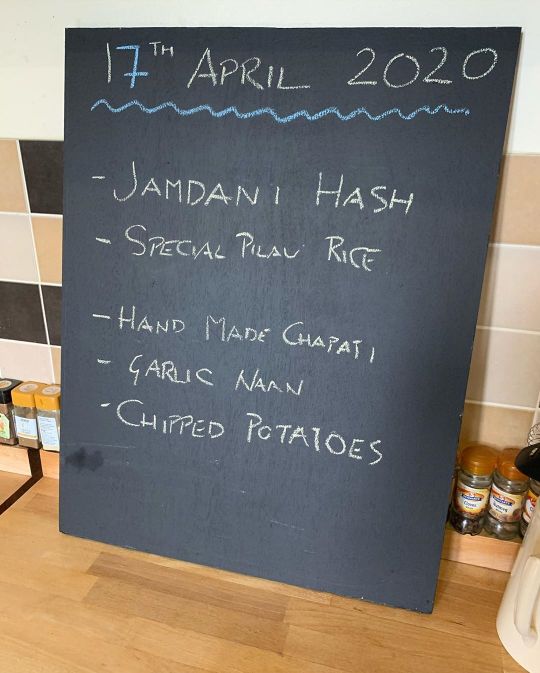 17TH APRIL 2020
- JAMDANI HASH
- SPECIAL PILAU RICE
- HAND MADE CHAPATI
- GARLIC NAAN
- CHIPPED POTATOES